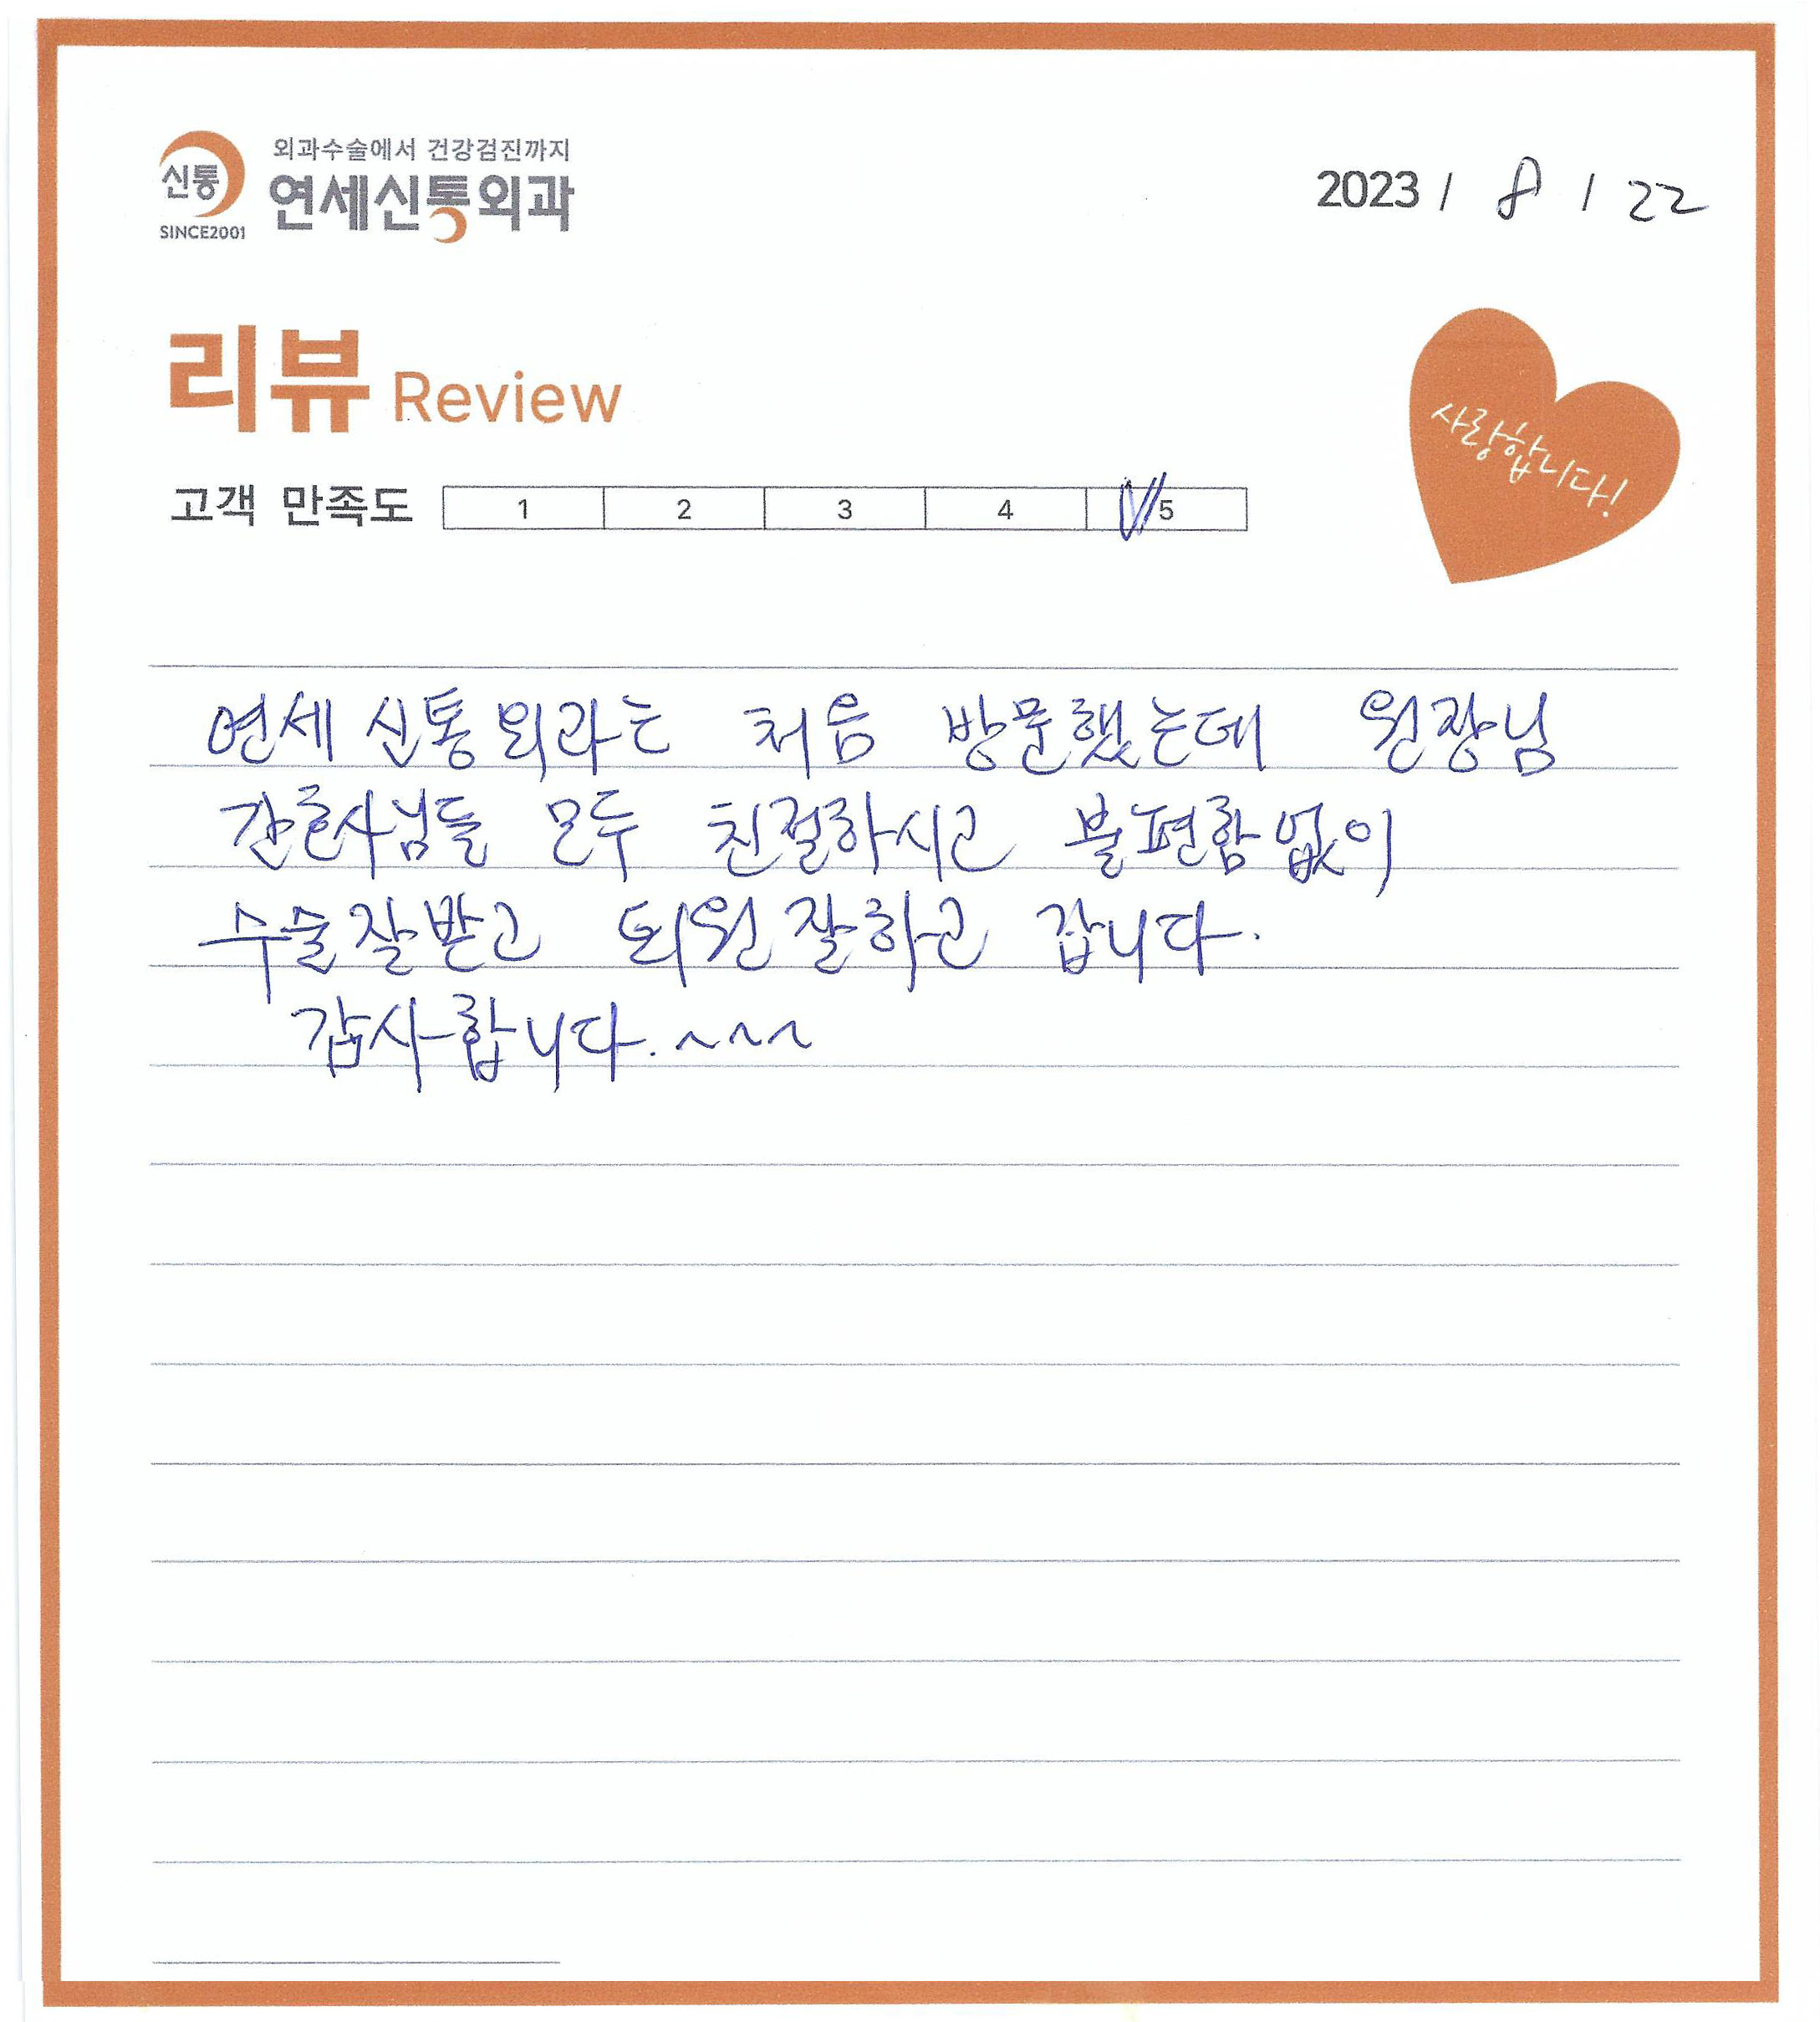 외과수술에서 건강검진까지
신통 연세신통외과
SINCE2001
2023 / 8 / 22
리뷰 Review
사랑합니다!
고객 만족도 1 2 3 4 5
연세 신통외과는 처음 방문했는데 원장님
간호사님들 모두 친절하시고 불편함없이
수술잘받고 퇴원잘하고 갑니다.
감사합니다. ~~~